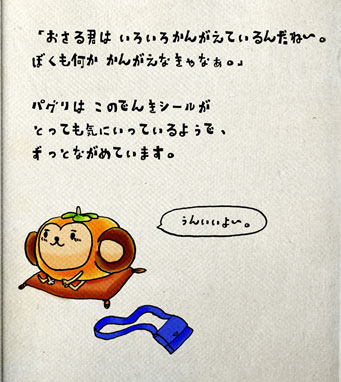 「おさる君は いろいろかんがえているんだね〜。
ぼくも何か かんがえなきゃなぁ。」
パグリは このでんきシールが
とっても気にいっているようで、
ずっとながめています。
うんいいよ〜。